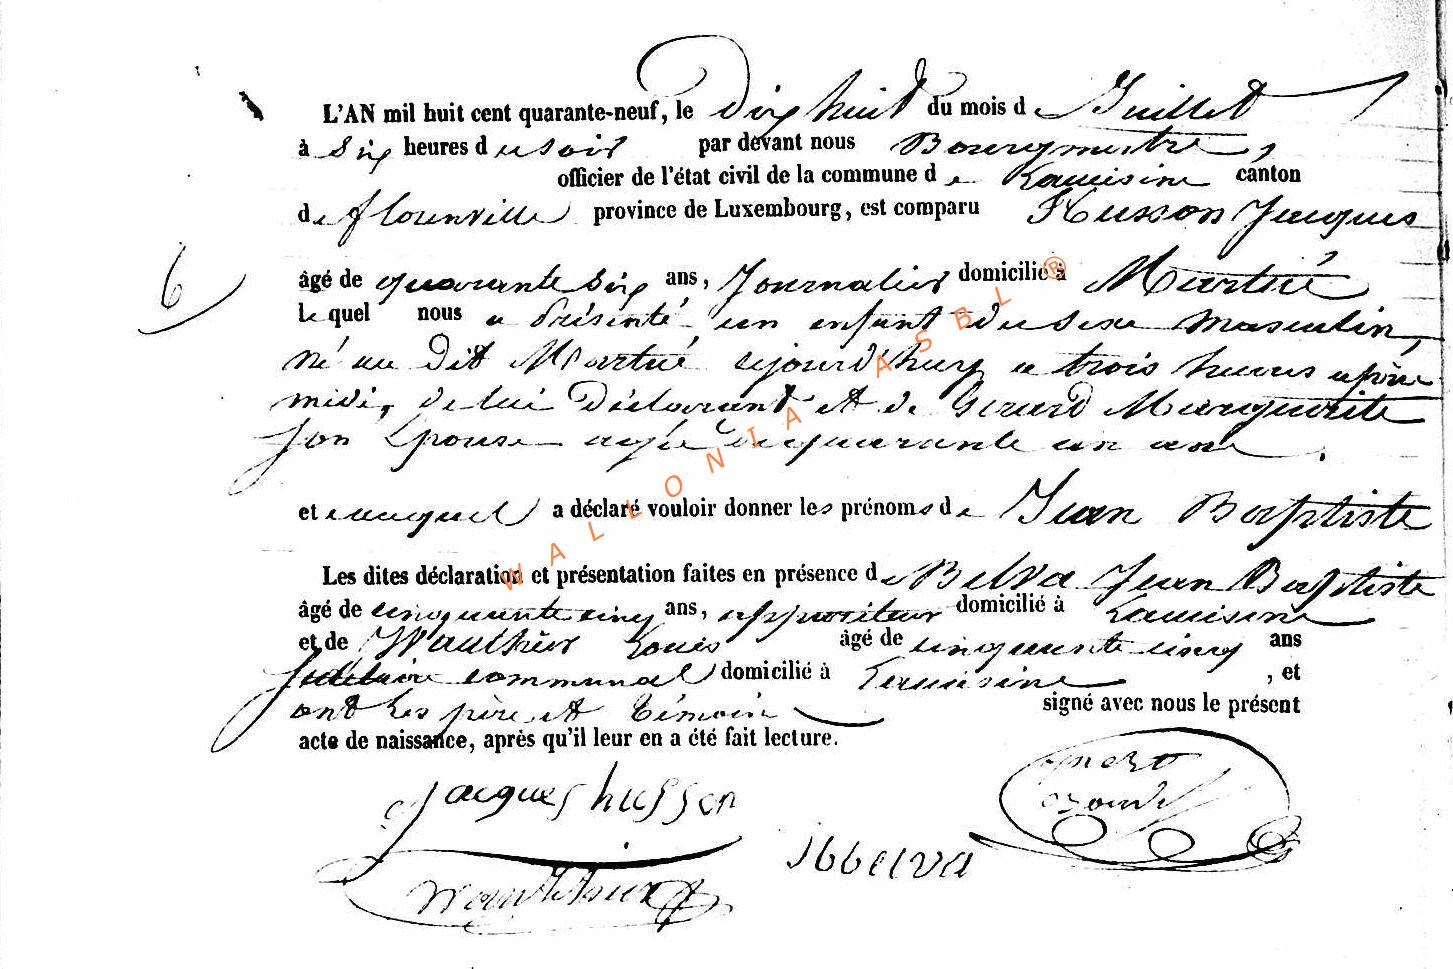 L'AN mil huit cent quarante-neuf, le dix huit du mois de Juillet
à Six heures du soir par devant nous Bourgmestre,
officier de l'état civil de la commune de Lacuisine canton
de florenville province de Luxembourg, est comparu Husson Jacques
âgé de quarante six ans, Journalier domicilié à Martué
6
le quel nous a Présenté un enfant du sexe masculin,
né au dit Martué aujourd'huy a trois heures après
midi, de lui Déclarant et de Gerard Marguerite
son Epouse agée de quarante un ans
et auquel a déclaré vouloir donner les prénoms de Jean Baptiste
Les dites déclaration et présentation faites en présence de Belva Jean Baptiste
âgé de cinquante cinq ans, appariteur domicilié à Lacuisine
et de Wauthier Louis âgé de cinquante cinq ans
communal domicilié à Lacuisine, et
ont Les père et témoin signé avec nous le présent
acte de naissance, après qu'il leur en a été fait lecture.
Jacques husson
jbbelva
WALLONIA ASBL ®